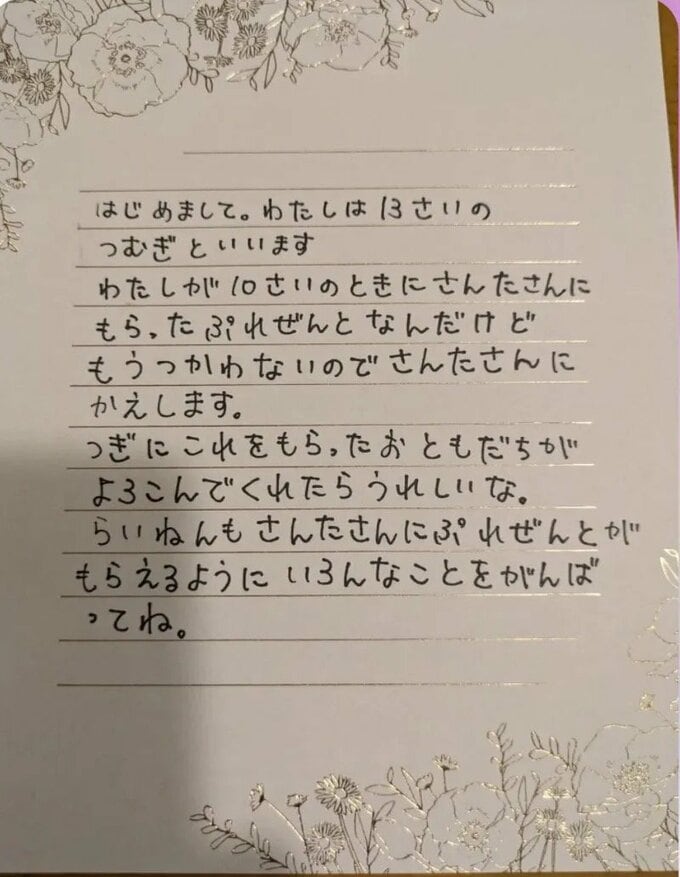 はじめまして。わたしは13さいの
つむぎといいます
わたしが10さいのときにさんたさんに
もらったぷれぜんとなんだけど
もうつかわないのでさんたさんに
かえします。
つぎにこれをもらったおともだちが
よろこんでくれたらうれしいな。
らいねんもさんたさんにぷれぜんとが
もらえるようにいろんなことをがんば
ってね。